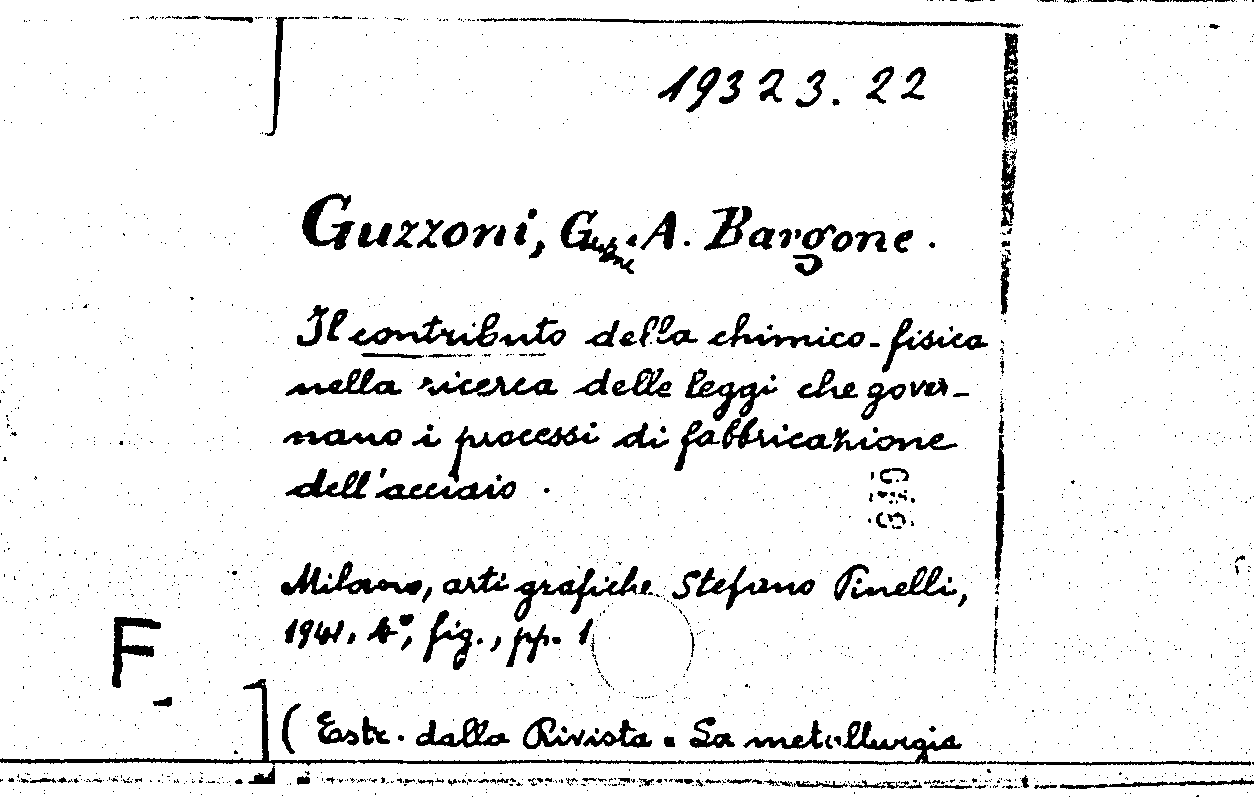 19323.22
Guzzoni, G. A. Bargone.
Il contributo della chimico-fisica
nella ricerca delle leggi che gover-
nano i processi di fabbricazione
dell'acciaio.
Milano, arti grafiche Stefano Pinelli,
1941. 4°, fig., pp. 1
F
(Estr. dalla Rivista "La metallurgia